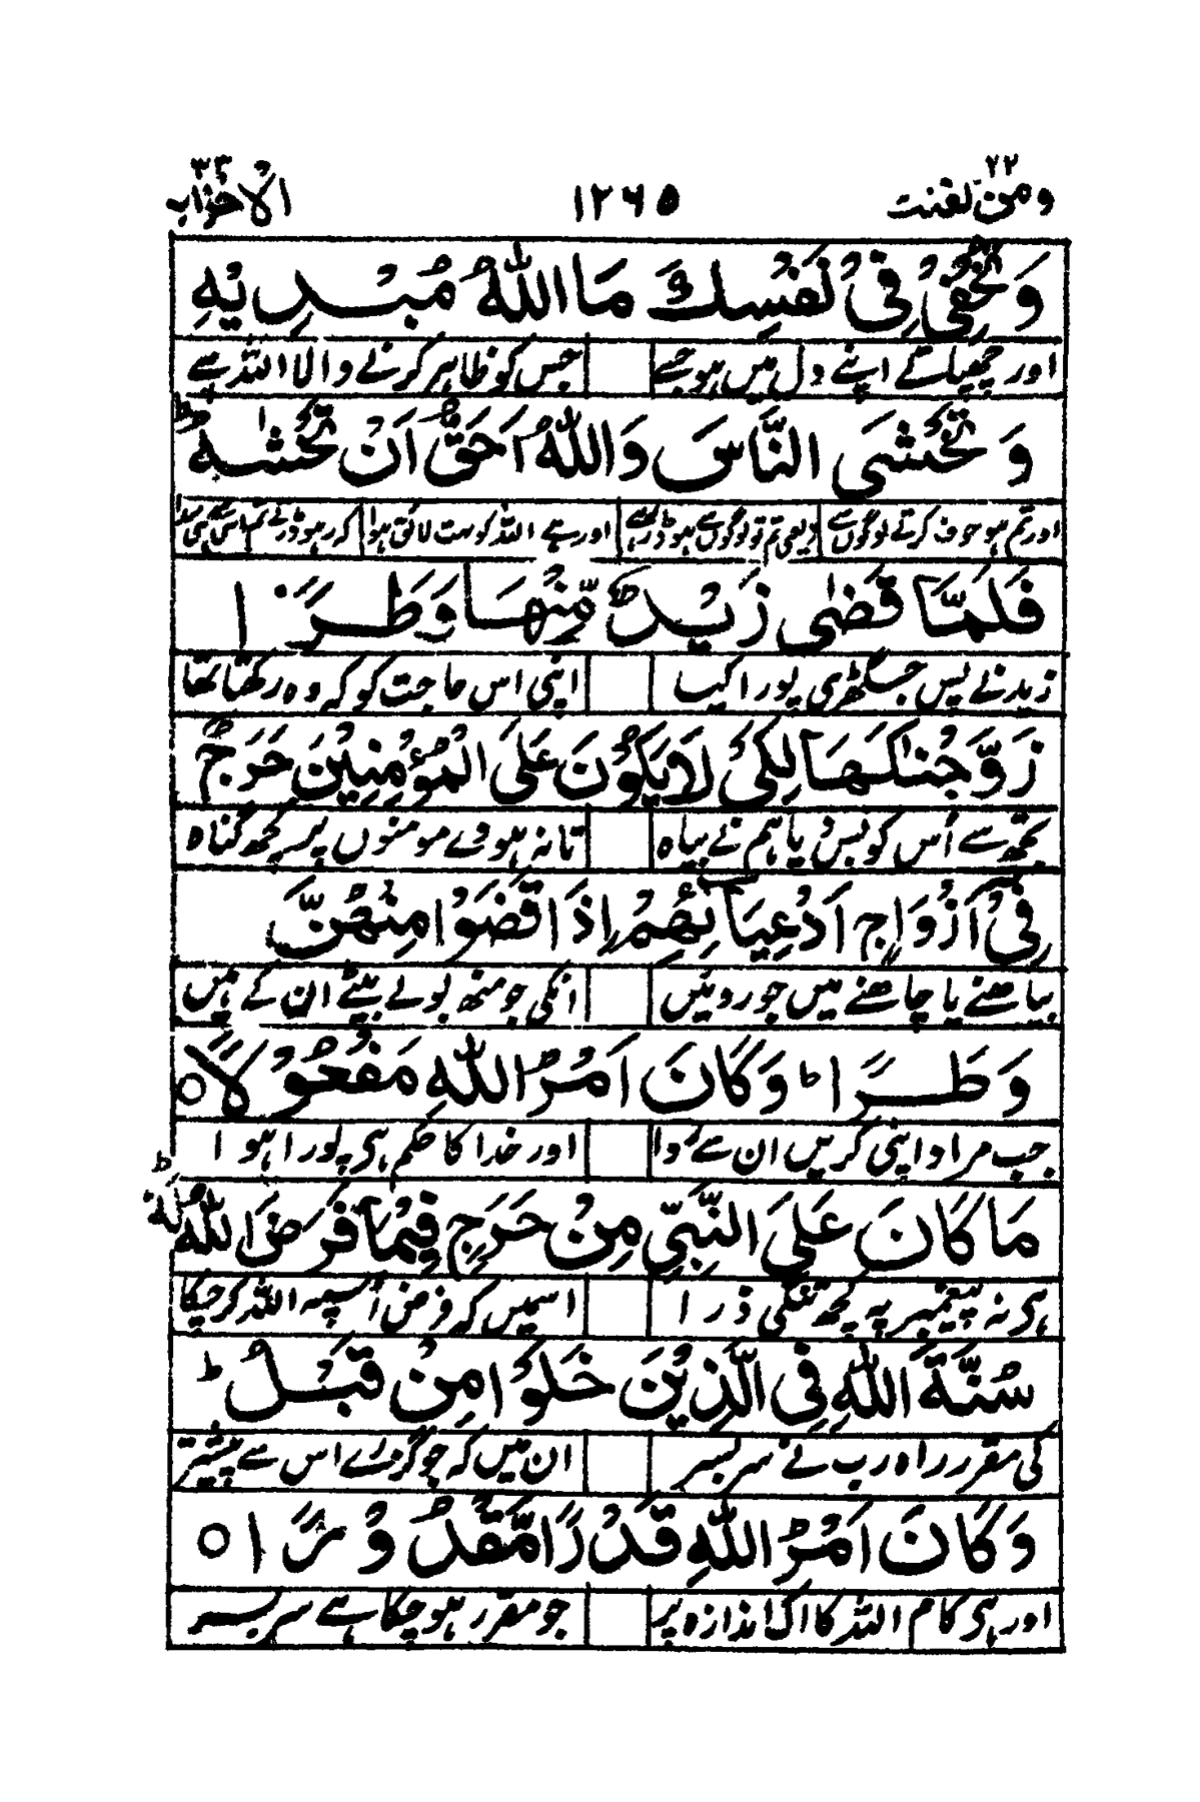 ومن یقنت ۲۲ ۱۲۶۵ الاحزاب ۳۳
وَتُخْفِیْ فِیْ نَفْسِكَ مَا اللّٰهُ مُبْدِیْهِ
اور چھپاتے اپنے دل میں ہو جسے جس کو ظاہر کرنے والا اللہ ہے
وَتَخْشَی النَّاسَ وَاللّٰهُ اَحَقُّ اَنْ تَخْشٰىهُ ؕ
اور تم ہو خوف کرتے لوگوں سے یعنی تم تو لوگوں سے ہو ڈر رہے اور ہے اللہ کو بہت لائق ہوا کر رہو ڈرتے تم اس سے ہی سدا
فَلَمَّا قَضٰی زَیْدٌ مِّنْهَا وَطَرًا
زید نے پس جس گھڑی پورا کیا اپنی اس حاجت کو کہ وہ رکھتا تھا
زَوَّجْنٰكَهَا لِكَیْ لَا یَكُوْنَ عَلَی الْمُؤْمِنِیْنَ حَرَجٌ
تجھ سے اس کو بس دیا ہم نے بیاہ تا نہ ہووے مومنوں پر کچھ گناہ
فِیْۤ اَزْوَاجِ اَدْعِیَآىِٕهِمْ اِذَا قَضَوْا مِنْهُنَّ
بیاہنے یا چاہنے میں جوروئیں انکی جو منھ بولے بیٹے ان کے ہیں
وَطَرًا ؕ وَكَانَ اَمْرُ اللّٰهِ مَفْعُوْلًا ○
جب مراد اپنی کریں ان سے روا اور خدا کا حکم ہی پورا ہوا
مَا كَانَ عَلَی النَّبِیِّ مِنْ حَرَجٍ فِیْمَا فَرَضَ اللّٰهُ لَهٗ ؕ
ہی نہ پیغمبر پہ کچھ تنگی ذرا اسمیں کہ فرض اسپہ اللہ کر چکا
سُنَّةَ اللّٰهِ فِی الَّذِیْنَ خَلَوْا مِنْ قَبْلُ ؕ
کی مقرر راہ رب نے سربسر ان میں کہ جو گزرے اس سے پیشتر
وَكَانَ اَمْرُ اللّٰهِ قَدَرًا مَّقْدُوْرًا ○
اور ہی کام اللہ کا اک اندازہ پر جو مقرر ہو چکا ہے سربسر